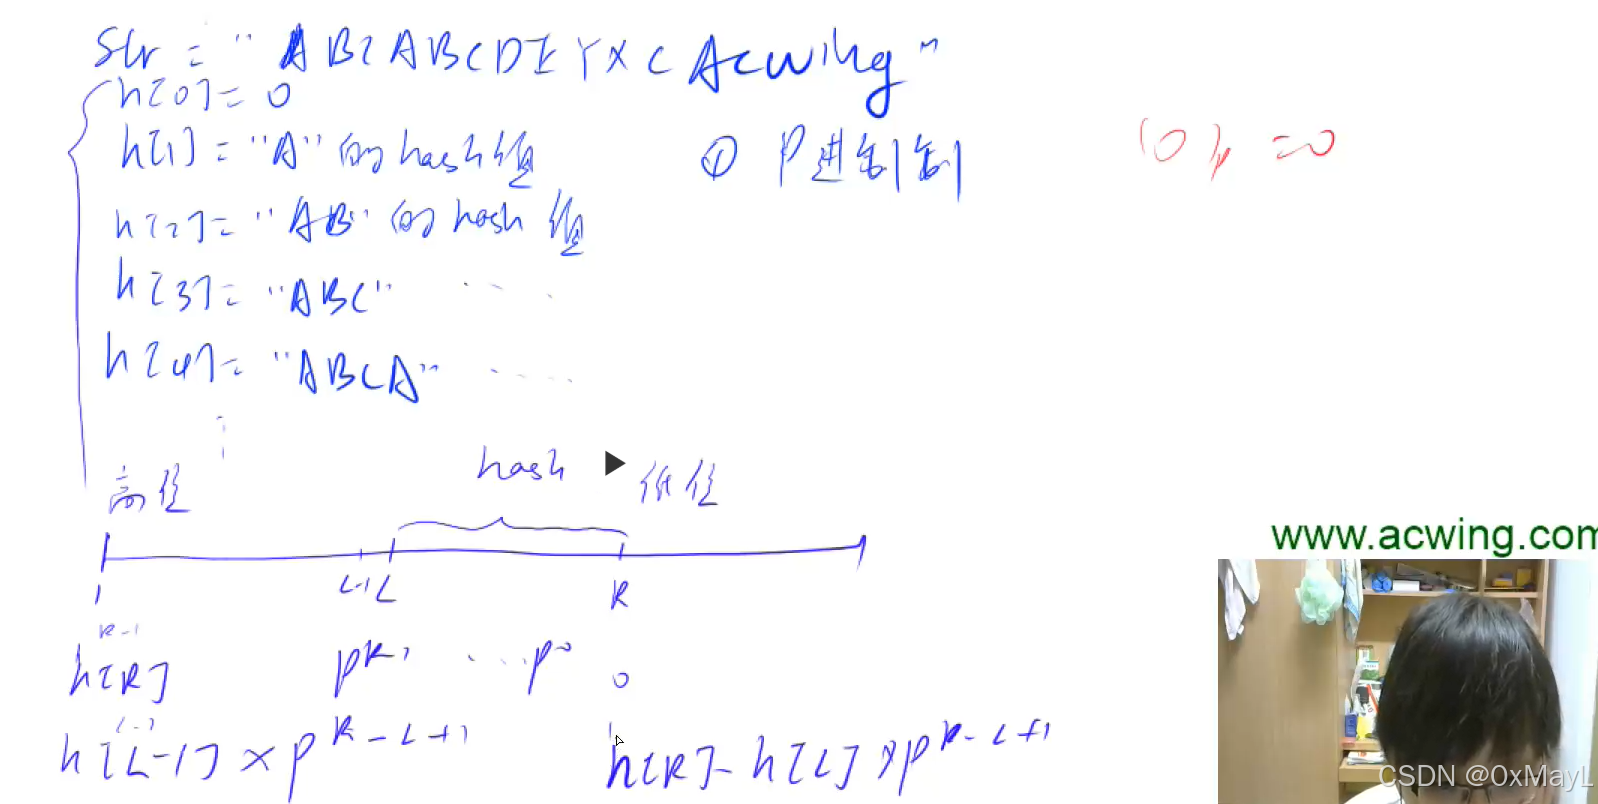 Str = "ABCABCDEYXCAcwing"
h[0] = 0
h[1] = "A" 的 hash 值
① P进制
(0)p = 0
h[2] = "AB" 的 hash 值
h[3] = "ABC" ....
h[4] = "ABCA" ....
hash
高位
低位
L-1 L R
1
R-1
h[R] p^R-1 ... p^0 0
h[L-1] × p^R-L+1
h[R] - h[L] × p^R-L+1
www.acwing.com
CSDN @0xMayL